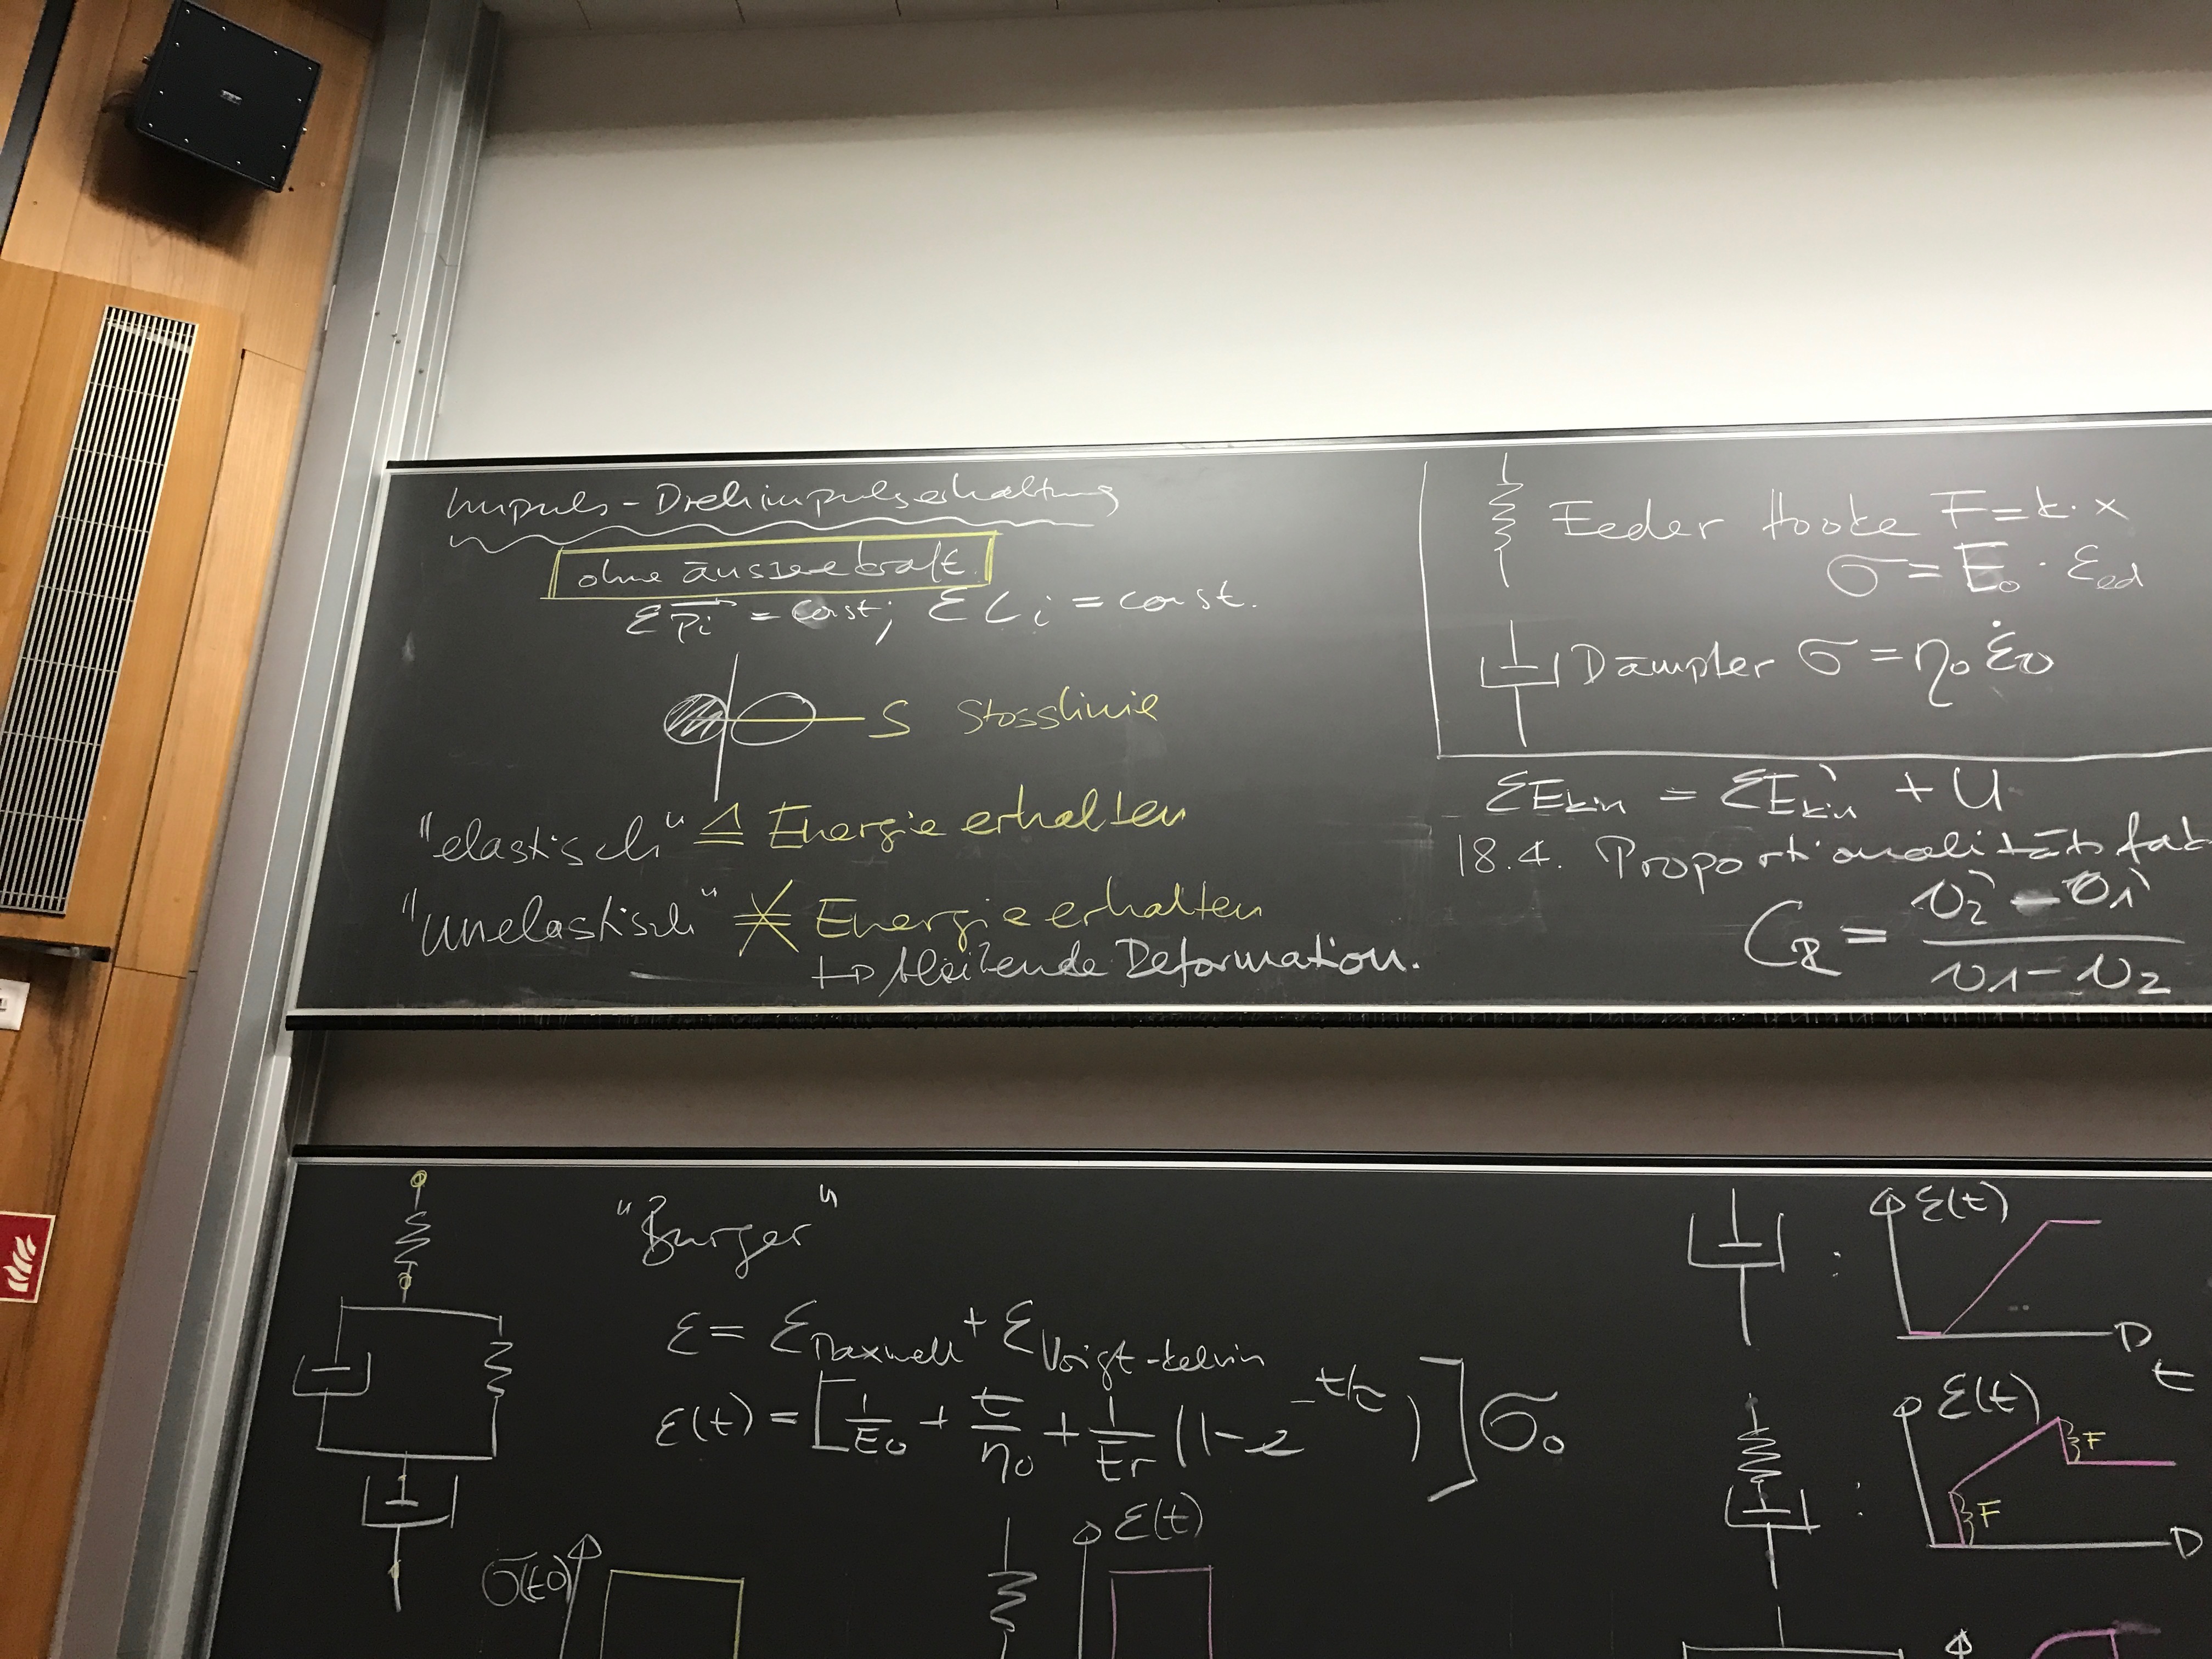 Impuls - Drehimpulserhaltung
ohne äussere kraft
Σ p⃗i = const; Σ Li = const.
S Stosslinie
"elastisch" ≙ Energie erhalten
"unelastisch" ≠ Energie erhalten
↦ bleibende Deformation.
Feder Hooke F = k · x
σ = E₀ · ε_ed
Dämpfer σ = η₀ ε̇₀
ΣEkin = ΣEkin' + U
18.4. Proportionalitätsfak
C_R = (v₂' - v₁') / (v₁ - v₂)
"Burger"
ε = ε Maxwell + ε Voigt-Kelvin
ε(t) = [1/E₀ + t/η₀ + 1/Er (1 - e^(-t/τ))] σ₀
σ(t)
ε(t)
: ε(t)
t
: ε(t)
F
F